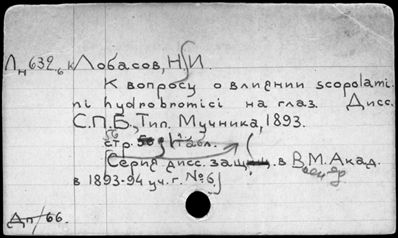 Лн 632 6 к Лобасов, Н. И.
К вопросу о влиении scopolami-
ni hydrobromici на глаз. Дисс.
С.П.Б., Тип. Мучника, 1893.
56
стр. 1 табл.
(Серия дисс. защищ. в В. М. Акад.
в 1893-94 уч. г. № 6)
Дп/66.